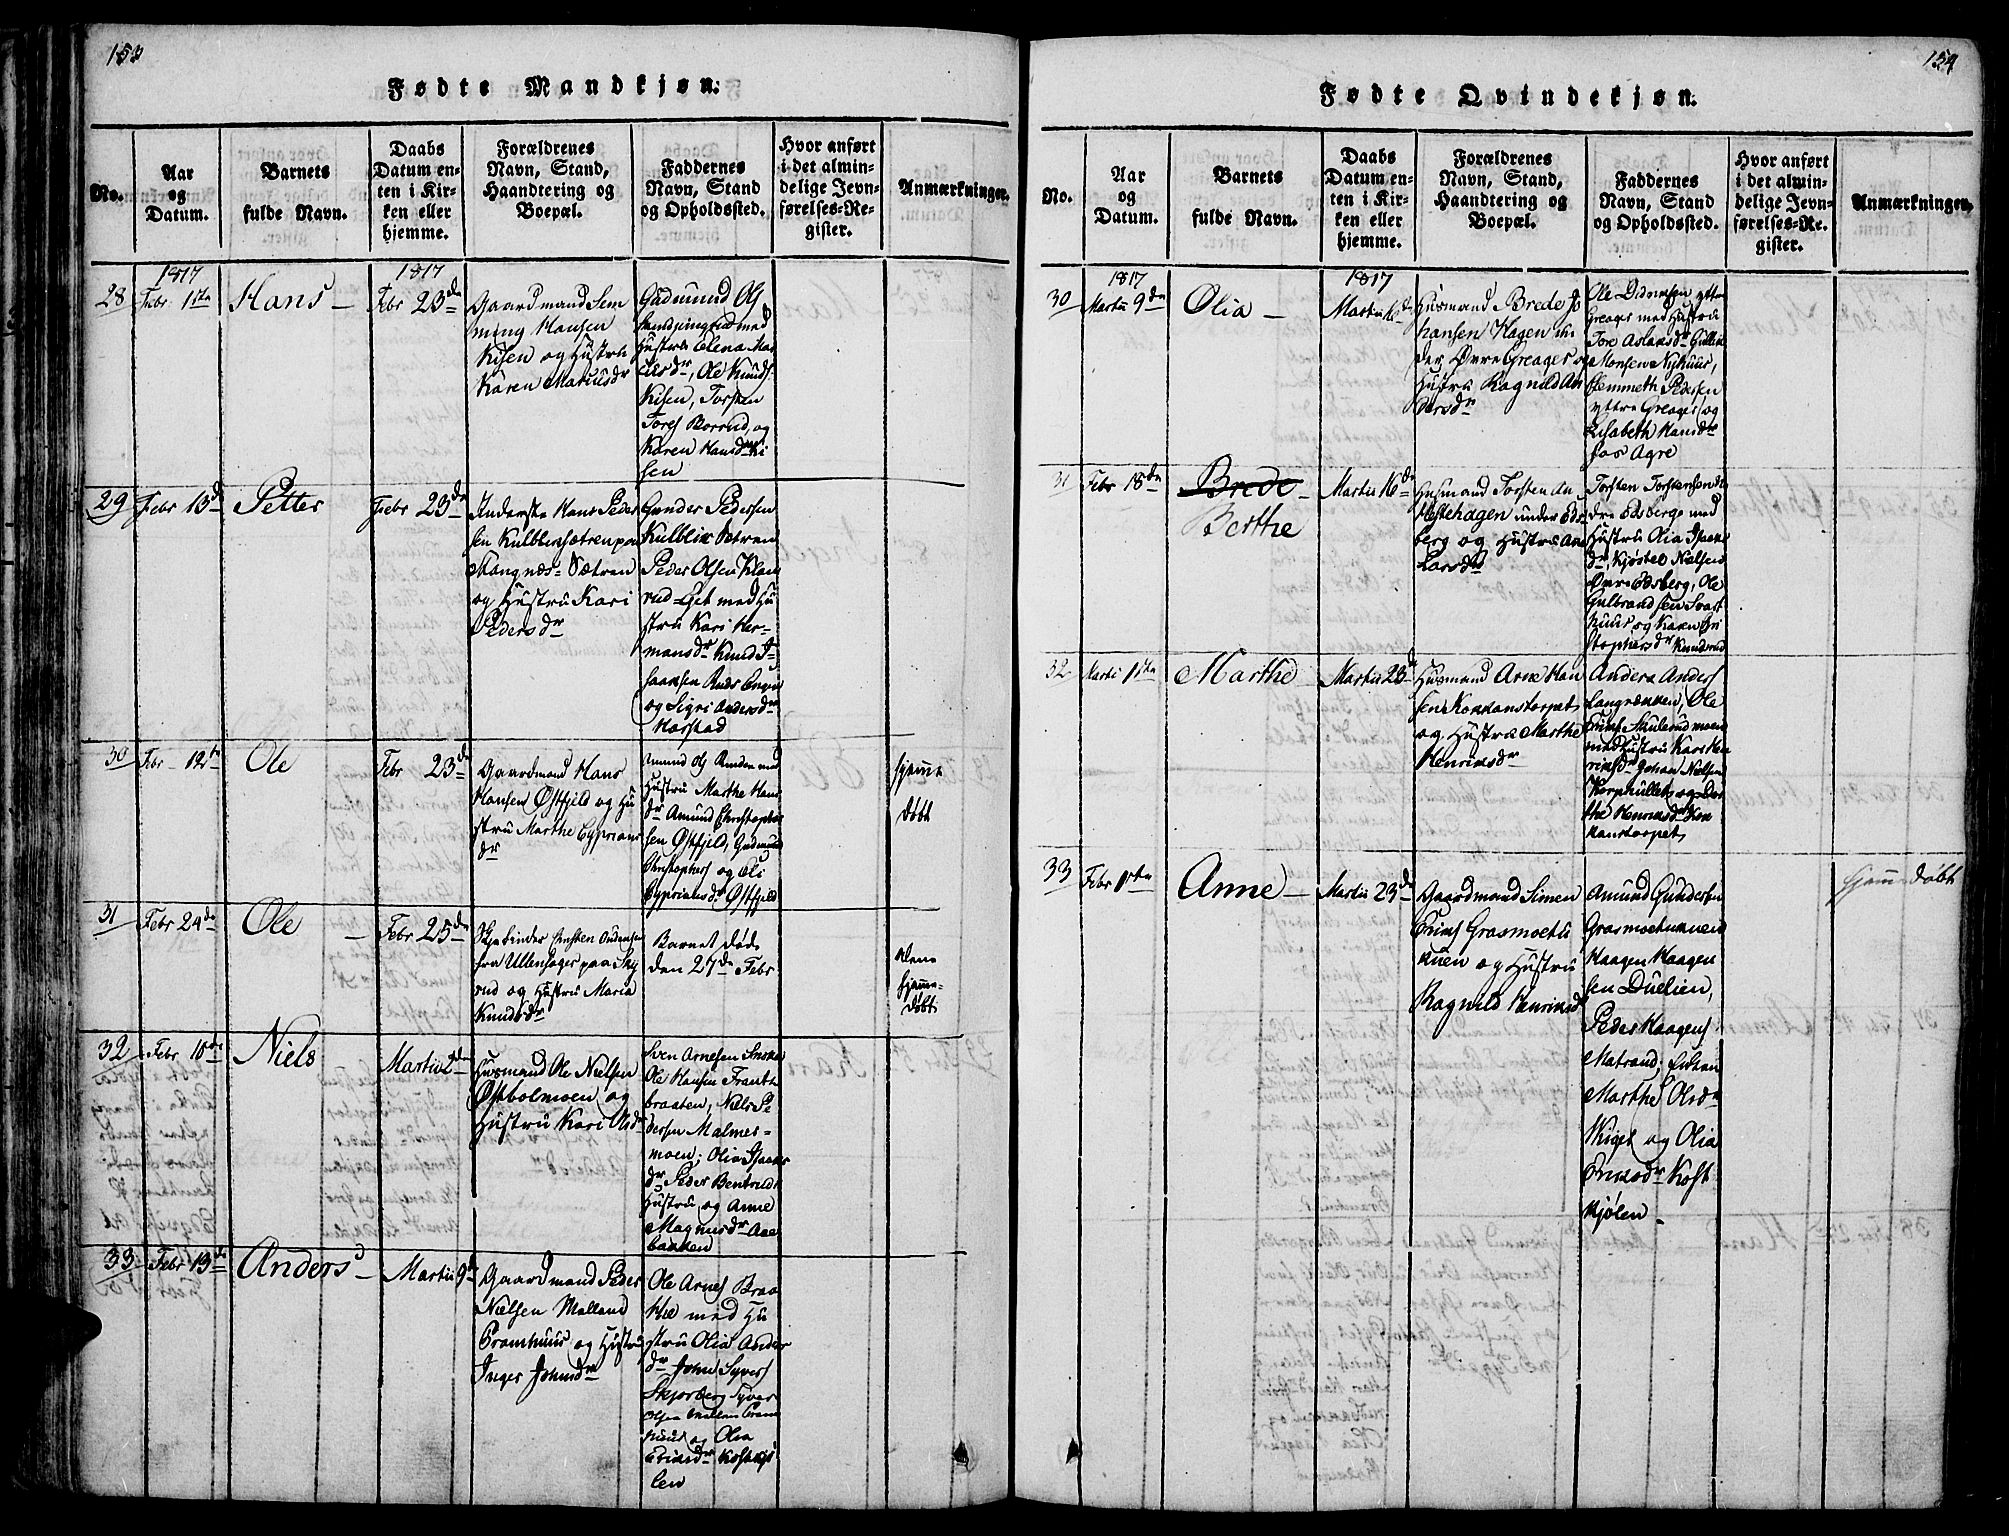 153
Fødte Mandkjøn.
No.
Aar
og
Datum.
Barnets
fulde Navn.
Daabs
Datum en-
ten i Kir-
ken eller
hjemme.
Forældrenes
Navn, Stand,
Haandtering og
Boepæl.
Faddernes
Navn, Stand
og Opholdssted.
Hvor anført
i det almin-
delige Jevn-
førelses-Re-
gister.
Anmærkninger.
1817
1817
28
Febr. 1ste
Hans
Febr 23de
Gaardmand Sem
ming Hansen
Kisen og Hustru
Karen Mariusdr
Gudmund Ols
med
Hustru Elena Mar
iusdr, Ole Knuds
Kisen, Torsten
Tores Borrud, og
Karen Hansdr Ki
sen
29
Febr 13de
Petter
Febr 23de
Inderste Hans Peder
sen Kulbliksætren paa
Stangnæs-Sætren
og Hustru Kari
Pedersdr
Gunder Pedersen
Kulblik Sætren
Peder Olsen Klan
rud-Eiet med Hu
stru Kari Her-
mansdr Knud I-
saaksen Ruds Engen
og Sigri Andersdr
Harstad
30
Febr 12te
Ole
Febr 23de
Gaardmand Hans
Hansen Østfjeld og Hu
stru Marthe Cyprians
dr
Amund Ols Runden med
Hustru Marthe Hans
dr Amund Christopher
sen Østfjeld, Gudmund
Christophers og Oli
Cypriansdr Østfjeld
hjemme
døbt
31
Febr 24de
Ole
Febr 25de
fra Ullensager paa Sky
rud og Hustru Maria
Knudsdr
Barnet døde
den 27de Febr
Alene
hjemme-
døbt
32
Febr 10de
Niels
Martii 2de
Huusmand Ole Nielsen
Østbolmoen og
Hustru Kari Olsdr
Sven Arnesen
Ole Hansen Frank
braaten, Niels Pe
dersen Malmer-
moen; Olia Isaaks
dr Peder Bentruds
Hustru og Anne
Magnusdr Aae
bakken
33
Febr 13de
Anders
Martii 9de
Gaardmand Peder
Nielsen Melland
Framhuus og Hustru
Inger Johnsdr
Ole Arnes Braa
the med Hu
stru Olia Anders
dr John Syvers
Skjørberg Syver
Olsen Mellem Fram
huus og Olia
Eriksdr Kostkjø
len
154
Fødte Qvindekjøn.
No.
Aar
og
Datum.
Barnets
fulde Navn.
Daabs
Datum en-
ten i Kir-
ken eller
hjemme.
Forældrenes
Navn, Stand,
Haandtering og
Boepæl.
Faddernes
Navn, Stand
og Opholdssted.
Hvor anført
i det almin-
delige Jevn-
førelses-Re-
gister.
Anmærkninger.
1817
1817
30
Martii 9de
Olia
Martii 16de
Huusmand Brede Jo
hansen Hagen un
der Øvre Greager og
Hustru Ragnild An
dersdr
Ole Didriksen yttre
Greager med Hustru
Tore Aslaksdr Gullik
Monsen Nyhuus,
Hemmeth Pedersen
yttre Greager og
Lisabeth Hansdr
paa Agre
31
Febr 18de
Brede
Berthe
Martii 16de
Huusmand Torsten An
Hestehagen under Eds
berg og Hustru Ane
Larsdr
Torsten Torstensen
dre Edsberg med
Hustru Olia Isaaks
dr, Kjøstel Nielsen
Øvre Edsberg, Ole
Gulbrandsen Svart
huus og Karen Chri
stophersdr Knudsrud
32
Martii 1ste
Marthe
Martii 23de
Huusmand Arne Han
sen Kankanstorpet
og Hustru Marthe
Henriksdr
Anders Anders
Langrækken, Ole
Eriks Skulerudmoen
med Hustru Kari Hen
riksdr Johan Nielsen
Korphullet og Mar
the Henriksdr Kan
kanstorpet
33
Febr 1ste
Anne
Martii 23de
Gaardmand Simen
Eriks Grasmoetu
nuen og Hustru
Ragnild Henriksdr
Amund Gundersen
Grasmoetunuen
Haagen Haagen
sen Duelien,
Peder Haagens
Matrand; Enken
Marthe Olsdr
Wiget og Olia
Eriksdr Kost
kjølen
hjem døbt